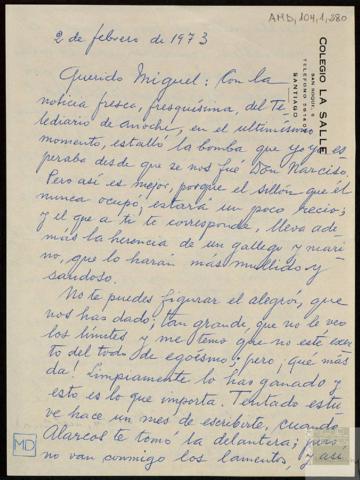 AMD, 104, 1, 280
COLEGIO LA SALLE
SAN ROQUE, 6
SANTIAGO
2 de febrero de 1973
Querido Miguel: Con la
noticia fresca, fresquísima, del Te
lediario de anoche, en el ultimísimo
momento, estalló la bomba que yo ya es
peraba desde que se nos fué Don Narciso.
Pero así es mejor, porque el sillón que él
nunca ocupó, estará un poco recio;
y el que a ti te corresponde, lleva ade
más la herencia de un gallego y mari
no, que lo harán más mullido y
sandoso.
No te puedes figurar el alegrón, que
nos has dado; tan grande, que no le veo
los límites y me temo que no esté exen
to del todo de egoísmo; pero, ¡qué más
da! Limpiamente lo has ganado y
esto es lo que importa. Tentado estu
ve hace un mes de escribirte, cuando
Alarcos te tomó la delantera; pero
no van conmigo los lamentos, y así
MD